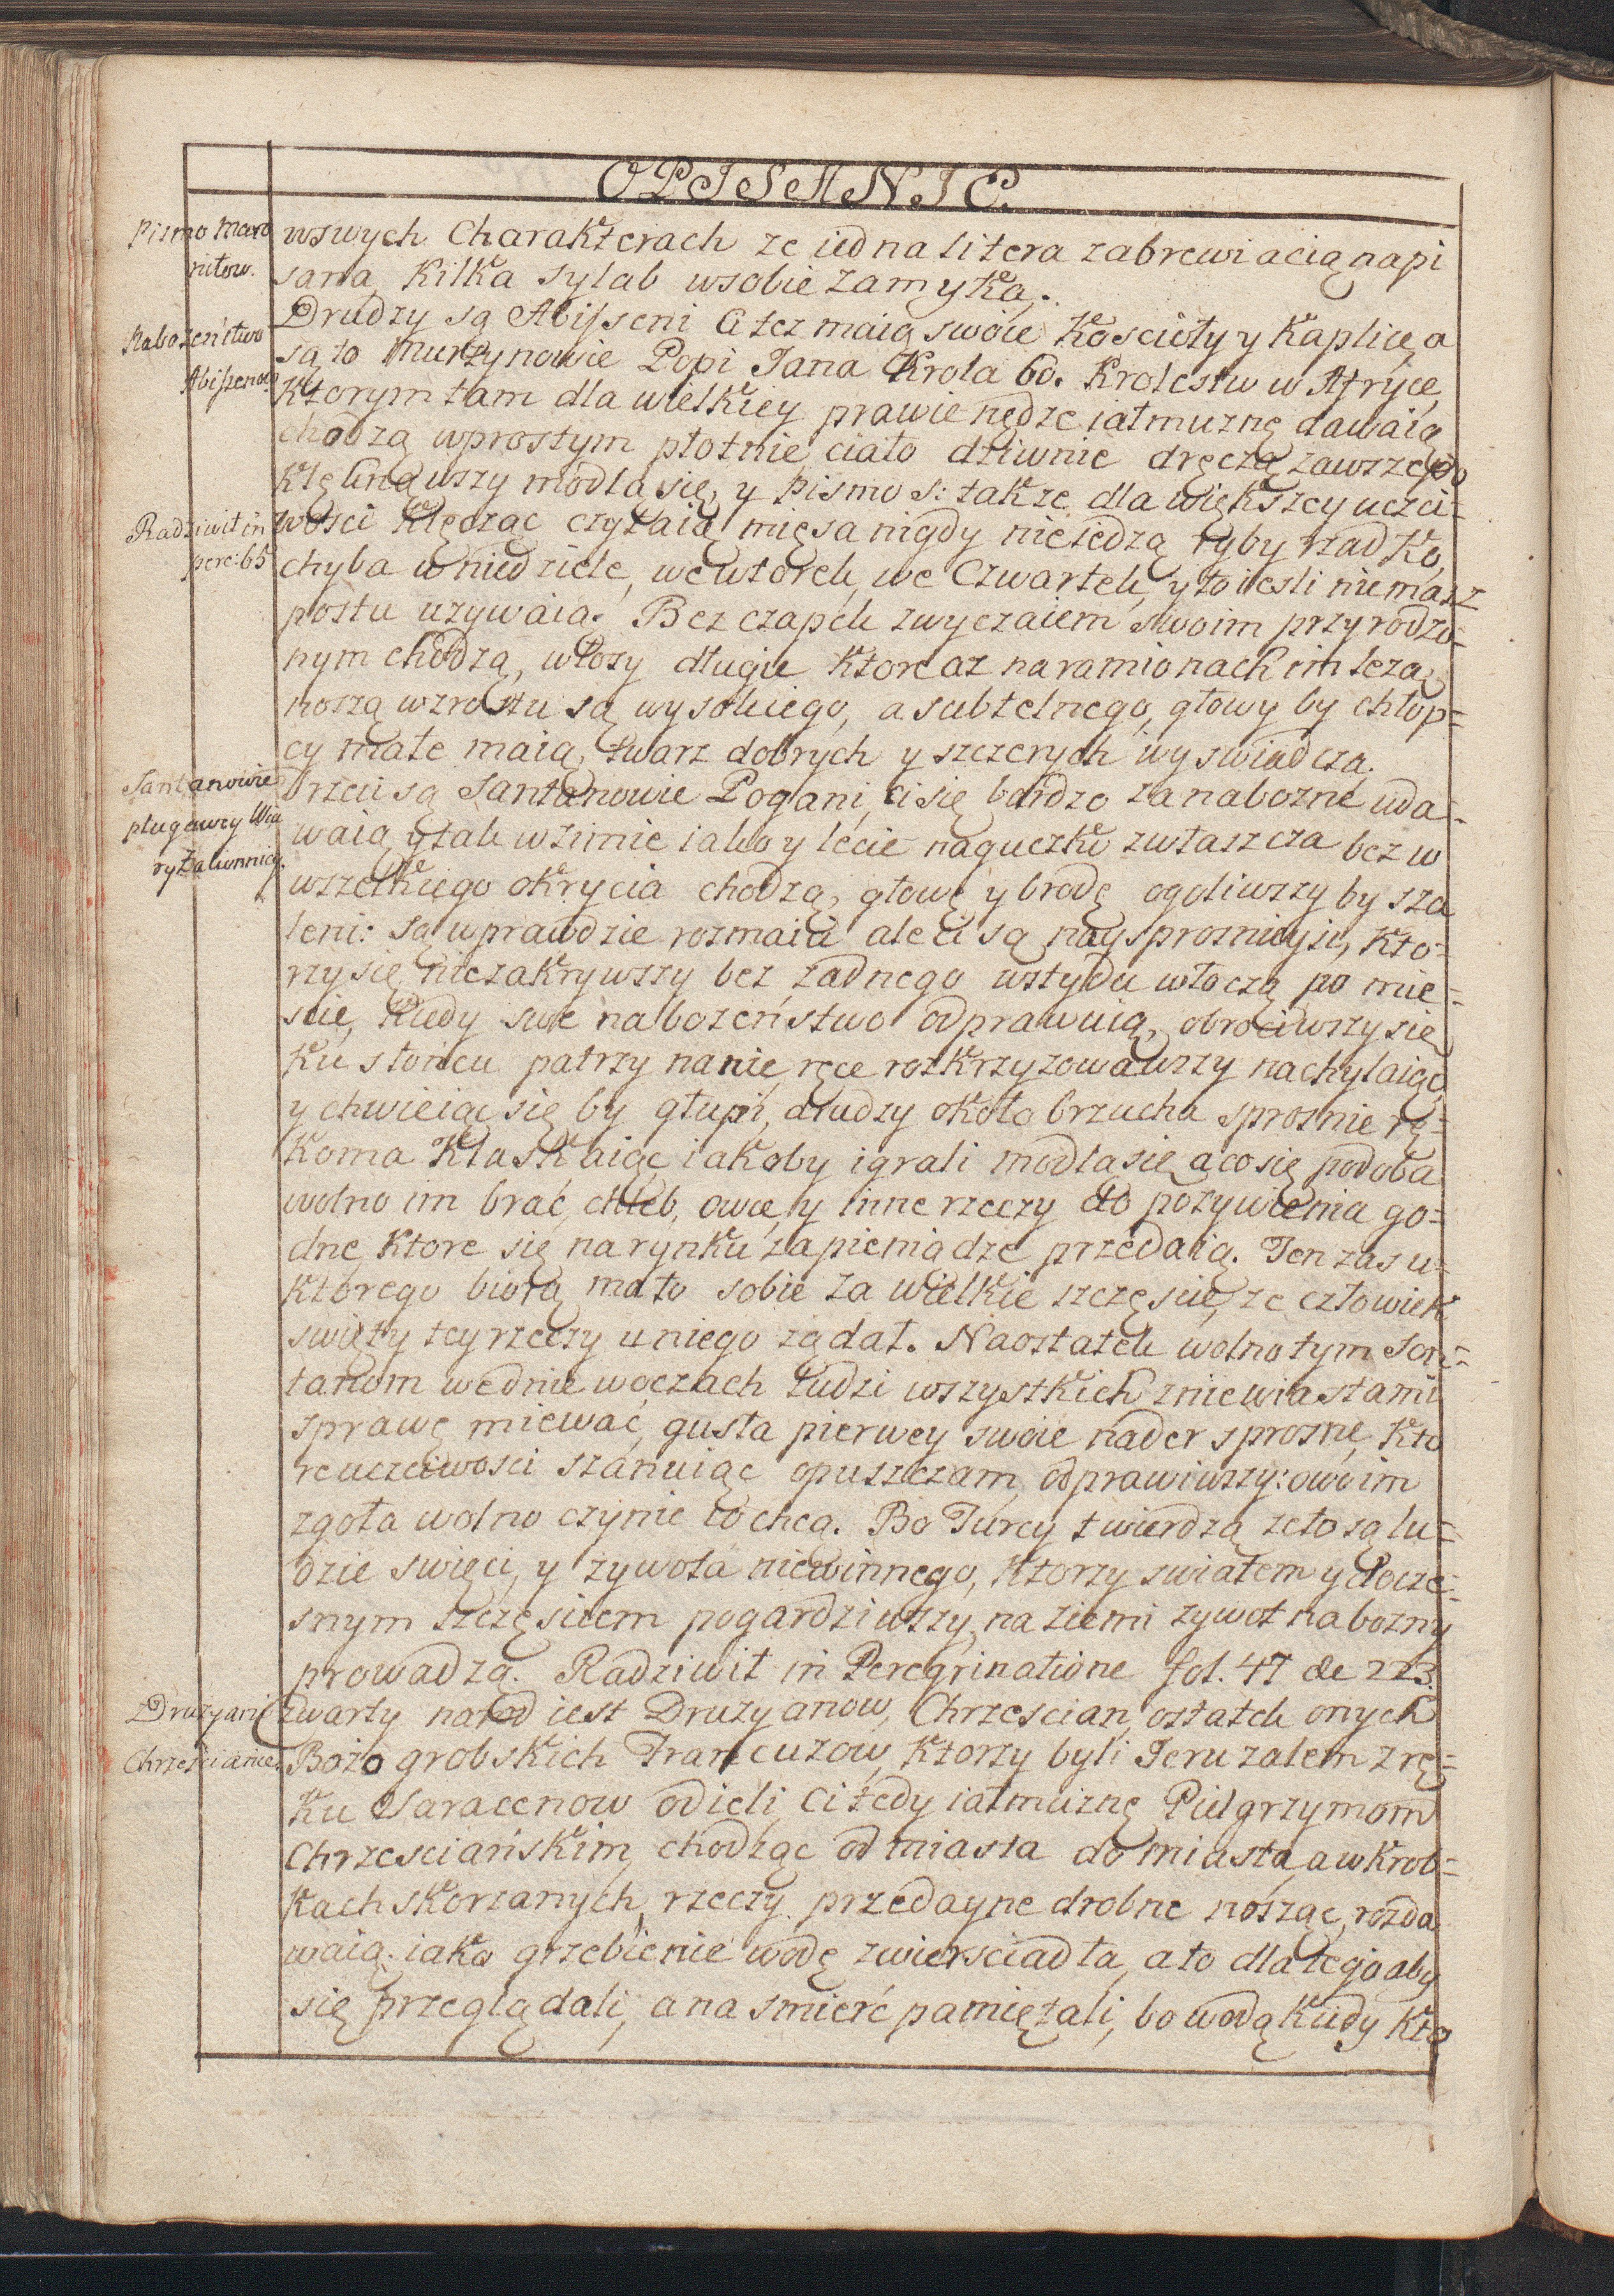 OPISANIE.
Pismo Maro
nitow.
wswych Charakterach ze iedna litera zabrewiacią napi
sana, kilka sylab wsobie zamyka.
Nabozeństwo
Abissenow
Drudzy są Abisseni Ci tez maią swoie Koscioły y Kaplice, a
są to Murzynowie Popi Jana Krola 60. Krolestw w Afryce,
Ktorym tam dla wielkiey prawie nędze iałmuznę dawaią
chodzą wprostym płotnie, ciało dziwnie dręczą zawsze po
klęknąwszy modlą się, y Pismo S: takze dla większey uczci-
Radziwił in
pere: 65
wości klęcząc czytaią, mięsa nigdy nieiedzą, ryby rzadko,
chyba w niedziele, we wtorek, we Czwartek, y to iesli niemasz
postu uzywaią. Bez czapek zwyczaiem swoim przyrodzo-
nym chodzą, włosy długie ktore az naramionach im lezą
noszą wzrostu są wysokiego, a subtelnego, głowy by chłop=
cy małe maią, twarz dobrych y szczerych wyswiadcza.
Santanowie
plugawcy Wia
ry Zakonnicy.
Trzeci są Santanowie Pogani, ci się bardzo za nabozne uda-
waią, y tak wzimie iako y lecie naguczko zwłaszcza bez w
wszelkiego okrycia chodzą, głowę y brodę ogoliwszy by sza
leni: Są wprawdzie rozmaici ale ci są naysprosnieysi, kto-
rzy się niezakrywszy bez zadnego wstydu włoczą po mie=
scie, kiedy swe nabozeństwo odprawuią, obrociwszy się
ku słońcu patrzy nanie, ręce rozkrzyzowawszy nachylaiąc,
y chwieiąc się by głupi, drudzy około brzucha sprosnie rę-
koma klaskaiąc iakoby igrali modlą się, a co się podoba
wolno im brać, chleb, owce, y inne rzeczy do pozywienia go=
dne, ktore się narynku zapieniądze przedaią. Ten zas u-
ktorego biorą, ma to sobie za wielkie szczęscie, ze człowiek
swięty tey rzeczy u niego ządał. Naostatek wolno tym San=
tanom wednie woczach ludzi wszystkich zniewiastami
sprawę miewać, gusła pierwey swoie nader sprosne, kto
re uczciwosci szanuiąc opuszczam, odprawiwszy: owo im
zgoła wolno czynic co chcą. Bo Turcy twierdzą ze to są lu=
dzie swięci, y zywota niewinnego, ktorzy swiatem y docze-
snym szczęsciem pogardziwszy, na ziemi zywot nabozny
prowadzą. Radziwił in Peregrinatione fol. 47 de 223.
Druzyani
Chrzescianie.
Czwarty narod iest Druzyanow, Chrzescian, ostatek onych
Bozogrobskich Francuzow, ktorzy byli Jeruzalem z rę=
ku Saracenow odieli, Ci tedy iałmuznę Pielgrzymom
Chrzesciańskim, chodząc od miasta do miasta, a wkrob=
kach skorzanych, rzeczy przedayne drobne nosząc, rozda
waią: iako grzebienie wodę zwiersciadła, a to dlatego aby
się przeglądali, a na smierć pamiętali, bo wodą kiedy kto